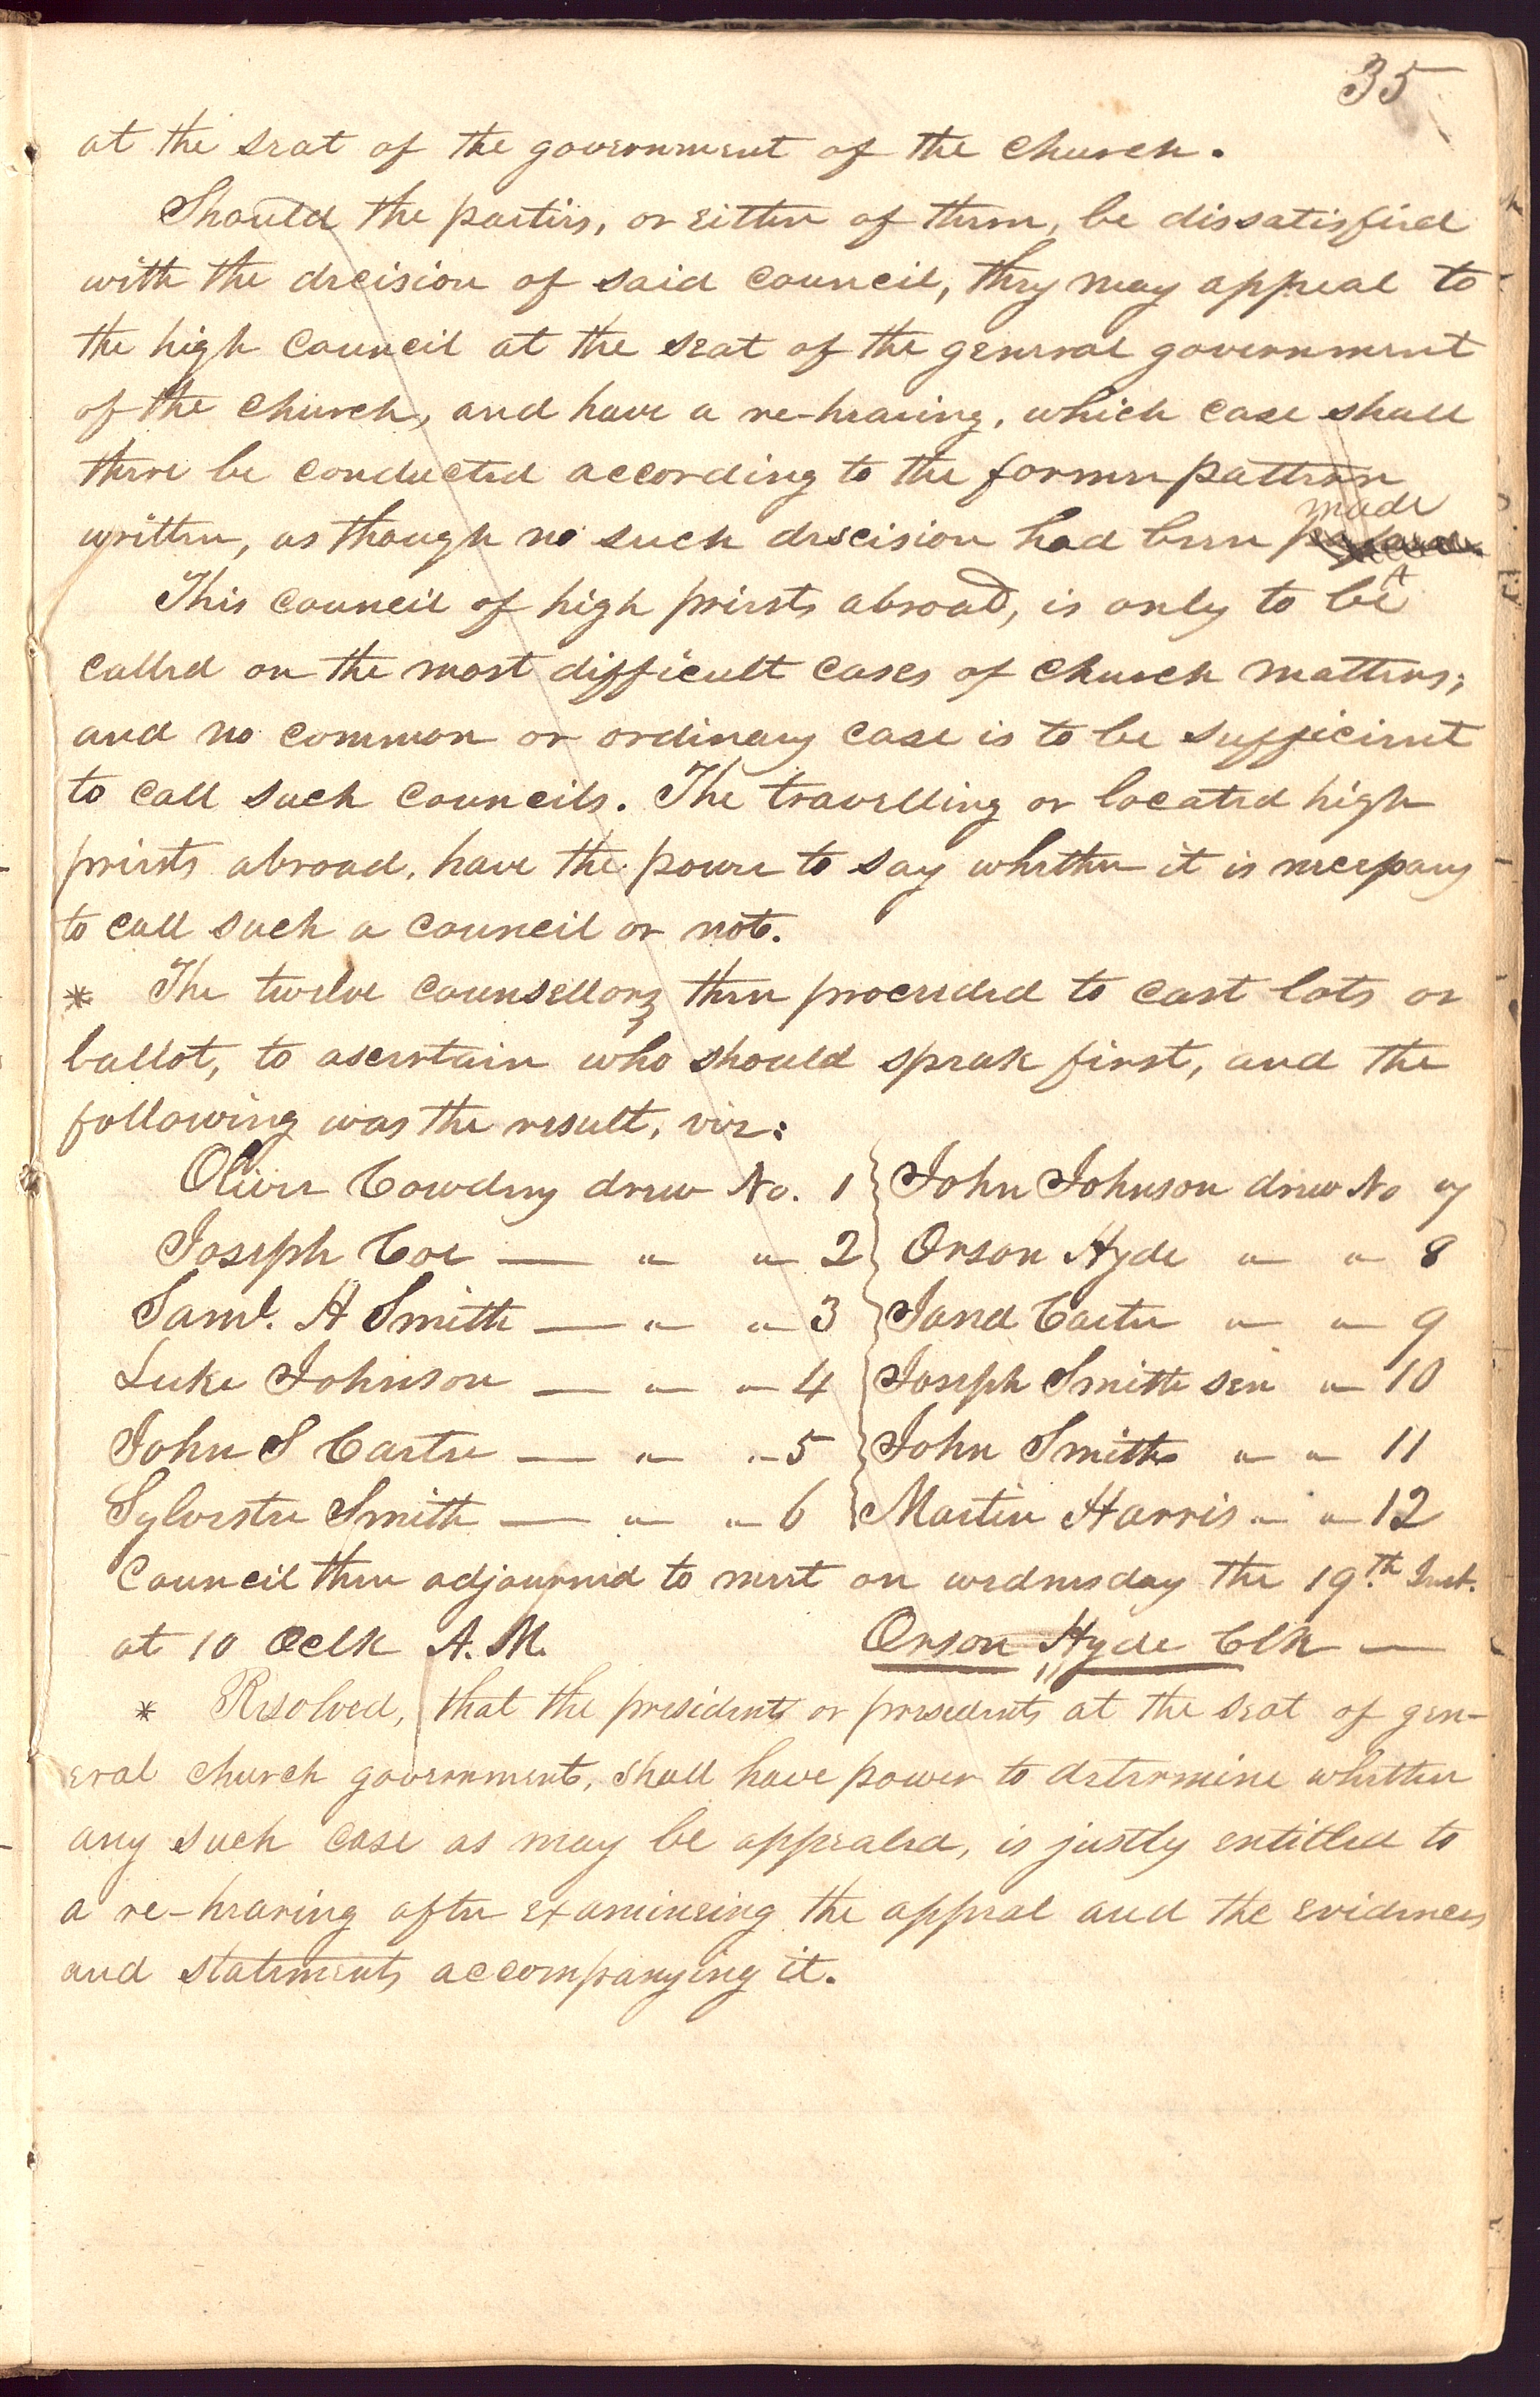 35
at the seat of the government of the church.
Should the parties, or either of them, be dissatisfied
with the decision of said council, they may appeal to
the high council at the seat of the general government
of the church, and have a re-hearing, which case shall
there be conducted according to the former pattern
made
written, as though no such descision had been
This council of high priests abroad, is only to be
called on the most difficult cases of church matters;
and no common or ordinary case is to be sufficient
to call such councils. The travelling or located high
priests abroad, have the power to say whether it is necessary
to call such a council or not.
* The twelve counsellors then proceeded to cast lots or
ballot, to asertain who should speak first, and the
following was the result, viz:
Oliver Cowdery drew No. 1 } John Johnson drew No 7
Joseph Coe — " " 2 } Orson Hyde " " 8
Saml. H Smith — " " 3 } Jared Carter " " 9
Luke Johnson — " " 4 } Joseph Smith sen " 10
John S Carter — " " 5 } John Smith " " 11
Sylvester Smith — " " 6 } Martin Harris " " 12
Council then adjourned to meet on wednesday the 19th Inst.
at 10 Oclk A.M. Orson Hyde Clk —
* Resolved, that the president or presidents at the seat of gen-
eral church government, shall have power to determine whether
any such case as may be appealed, is justly entitled to
a re-hearing after examineing the appeal and the evidences
and statements accompanying it.